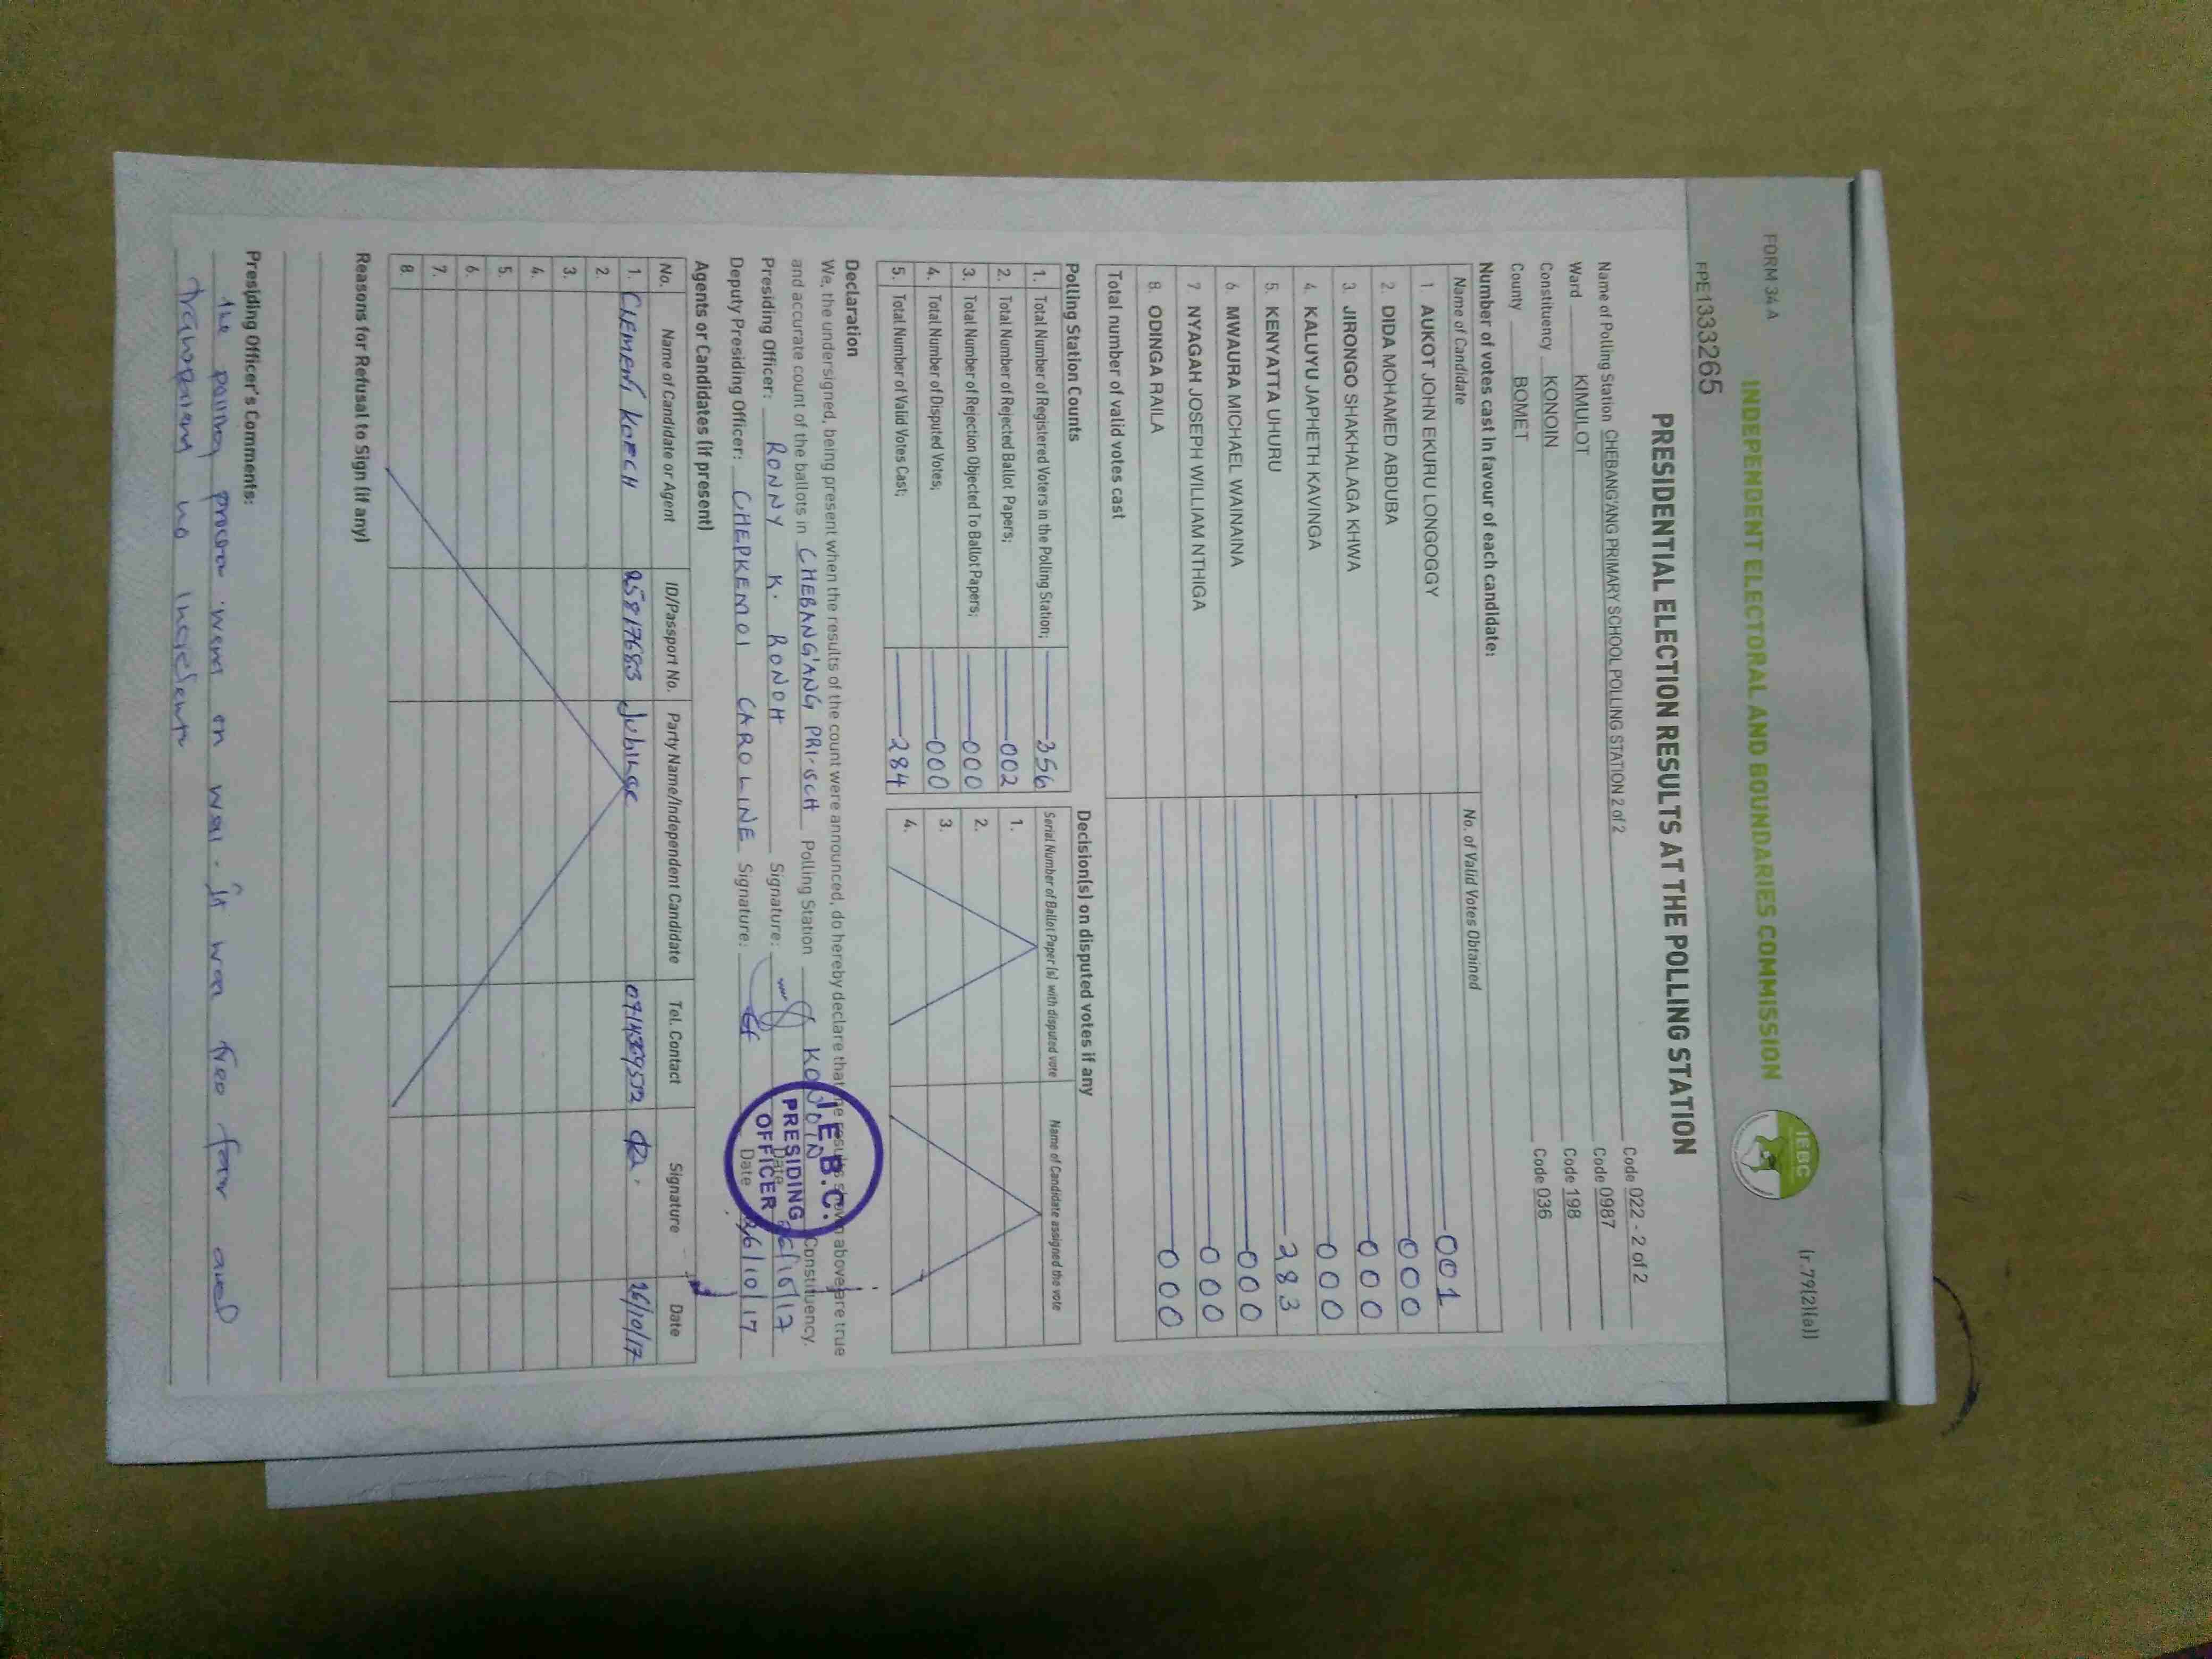 FORM 34 A
(r.79(2)(a))
INDEPENDENT ELECTORAL AND BOUNDARIES COMMISSION
IEBC
FPE1333265
PRESIDENTIAL ELECTION RESULTS AT THE POLLING STATION
Name of Polling Station CHEBANG'ANG PRIMARY SCHOOL POLLING STATION 2 of 2 Code 022 - 2 of 2
Ward KIMULOT Code 0987
Constituency KONOIN Code 198
County BOMET Code 036
Number of votes cast in favour of each candidate:
Name of Candidate No. of Valid Votes Obtained
1. AUKOT JOHN EKURU LONGOGGY 001
2. DIDA MOHAMED ABDUBA 000
3. JIRONGO SHAKHALAGA KHWA 000
4. KALUYU JAPHETH KAVINGA 000
5. KENYATTA UHURU 283
6. MWAURA MICHAEL WAINAINA 000
7 NYAGAH JOSEPH WILLIAM NTHIGA 000
8. ODINGA RAILA 000
Total number of valid votes cast
Polling Station Counts
1. Total Number of Registered Voters in the Polling Station; 356
2. Total Number of Rejected Ballot Papers; 002
3. Total Number of Rejection Objected To Ballot Papers; 000
4. Total Number of Disputed Votes; 000
5. Total Number of Valid Votes Cast; 284
Decision(s) on disputed votes if any
Serial Number of Ballot Paper (s) with disputed vote Name of Candidate assigned the vote
1.
2.
3.
4.
Declaration
We, the undersigned, being present when the results of the count were announced, do hereby declare that the results shown above are true
and accurate count of the ballots in CHEBANG'ANG PRI. SCH Polling Station KONOIN Constituency.
Presiding Officer: RONNY K. RONOH Signature: Date 26/10/17
Deputy Presiding Officer: CHEPKEMOI CAROLINE Signature: Date 26/10/17
I.E.B.C.
PRESIDING
OFFICER
Agents or Candidates (if present)
No. Name of Candidate or Agent ID/Passport No. Party Name/Independent Candidate Tel. Contact Signature Date
1. CLEMENT KOECH 25817683 Jubilee 26/10/17
2.
3.
4.
5.
6.
7.
8.
Reasons for Refusal to Sign (if any)
Presiding Officer's Comments:
the polling process went on well. It was free fair and
transparent no incidents